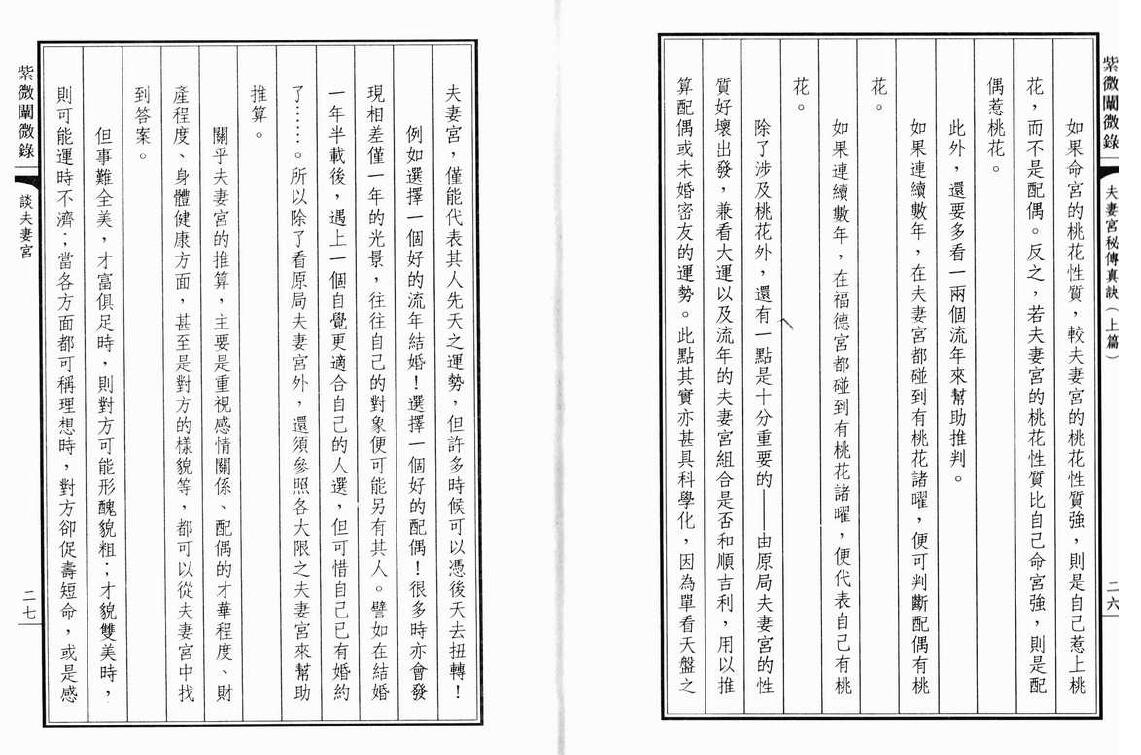 紫微闡微錄
夫妻宮秘傳真訣（上篇）
二六
如果命宮的桃花性質，較夫妻宮的桃花性質強，則是自己惹上桃
花，而不是配偶。反之，若夫妻宮的桃花性質比自己命宮強，則是配
偶惹桃花。
此外，還要多看一兩個流年來幫助推判。
如果連續數年，在夫妻宮都碰到有桃花諸曜，便可判斷配偶有桃
花。
如果連續數年，在福德宮都碰到有桃花諸曜，便代表自己有桃
花。
除了涉及桃花外，還有一點是十分重要的——由原局夫妻宮的性
質好壞出發，兼看大運以及流年的夫妻宮組合是否和順吉利，用以推
算配偶或未婚密友的運勢。此點其實亦甚具科學化，因為單看天盤之
夫妻宮，僅能代表其人先天之運勢，但許多時候可以憑後天去扭轉！
例如選擇一個好的流年結婚！選擇一個好的配偶！很多時亦會發
現相差僅一年的光景，往往自己的對象便可能另有其人。譬如在結婚
一年半載後，遇上一個自覺更適合自己的人選，但可惜自己已有婚約
了……。所以除了看原局夫妻宮外，還須參照各大限之夫妻宮來幫助
推算。
關乎夫妻宮的推算，主要是重視感情關係、配偶的才華程度、財
產程度、身體健康方面，甚至是對方的樣貌等，都可以從夫妻宮中找
到答案。
但事難全美，才富俱足時，則對方可能形醜貌粗；才貌雙美時，
則可能運時不濟；當各方面都可稱理想時，對方卻促壽短命，或是感
紫微闡微錄
談夫妻宮
二七